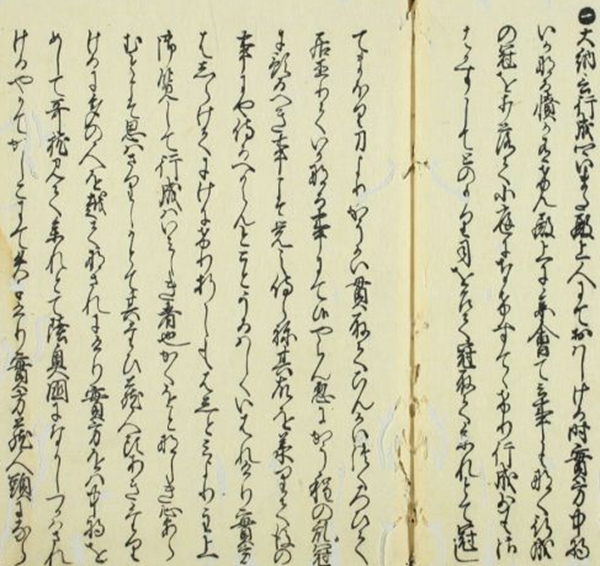 一大納言行成いまた殿上人にておはしける時實方中将
いかなる憤かありけん殿上に参會て云事もなく行成
の冠を打落て小庭になけすてけり行成さわ
すして とのもり司をめして冠取て参れとて冠し
てまもり刀よりかうかい貫取てひんかいつくろひて
居直りていかなる事にて候やらん忽にかう程の乱冠
に預るへき事こそ覚え侍らね其故を承りて後の
事にや侍へからんとことうるはしくいはれけり實方
はしらけてにけにけり折しもはしとみより主上
御覧して行成はいみしき者也かくをとなしき心あら
むとこそ思はさりしかとて其たひ蔵人頭あきたり
けるにおほくの人を越てなされにけり實方をは中将を
めして哥枕見て参れとて陸奥國になかしつかはされ
けるやかてかしこにて失にけり實方蔵人頭にならて